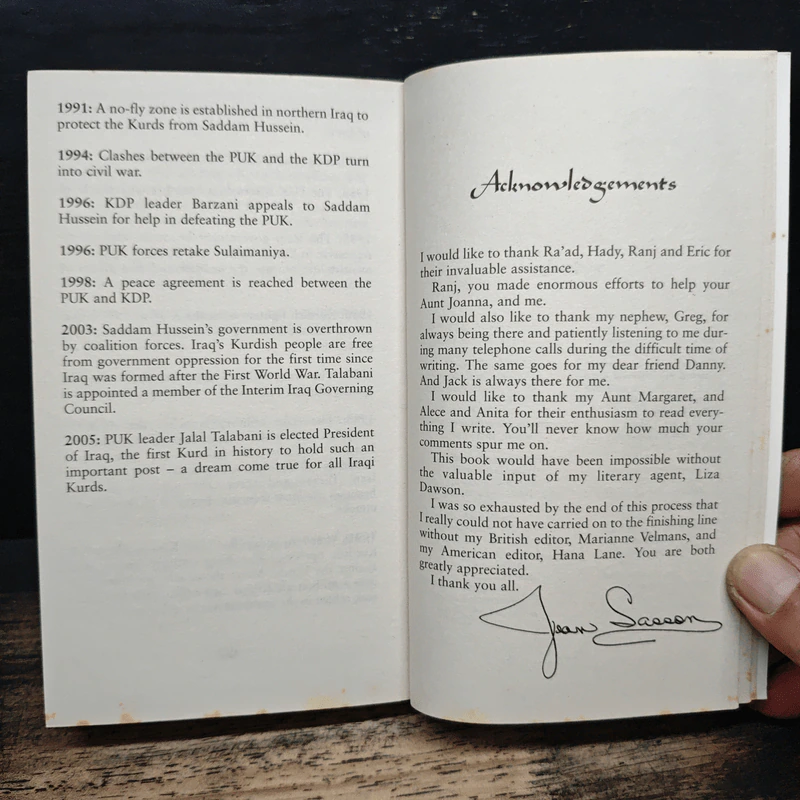 1991: A no-fly zone is established in northern Iraq to
protect the Kurds from Saddam Hussein.
1994: Clashes between the PUK and the KDP turn
into civil war.
1996: KDP leader Barzani appeals to Saddam
Hussein for help in defeating the PUK.
1996: PUK forces retake Sulaimaniya.
1998: A peace agreement is reached between the
PUK and KDP.
2003: Saddam Hussein's government is overthrown
by coalition forces. Iraq's Kurdish people are free
from government oppression for the first time since
Iraq was formed after the First World War. Talabani
is appointed a member of the Interim Iraq Governing
Council.
2005: PUK leader Jalal Talabani is elected President
of Iraq, the first Kurd in history to hold such an
important post – a dream come true for all Iraqi
Kurds.
Acknowledgements
I would like to thank Ra'ad, Hady, Ranj and Eric for
their invaluable assistance.
Ranj, you made enormous efforts to help your
Aunt Joanna, and me.
I would also like to thank my nephew, Greg, for
always being there and patiently listening to me dur-
ing many telephone calls during the difficult time of
writing. The same goes for my dear friend Danny.
And Jack is always there for me.
I would like to thank my Aunt Margaret, and
Alece and Anita for their enthusiasm to read every-
thing I write. You'll never know how much your
comments spur me on.
This book would have been impossible without
the valuable input of my literary agent, Liza
Dawson.
I was so exhausted by the end of this process that
I really could not have carried on to the finishing line
without my British editor, Marianne Velmans, and
my American editor, Hana Lane. You are both
greatly appreciated.
I thank you all.
Jean Sasson